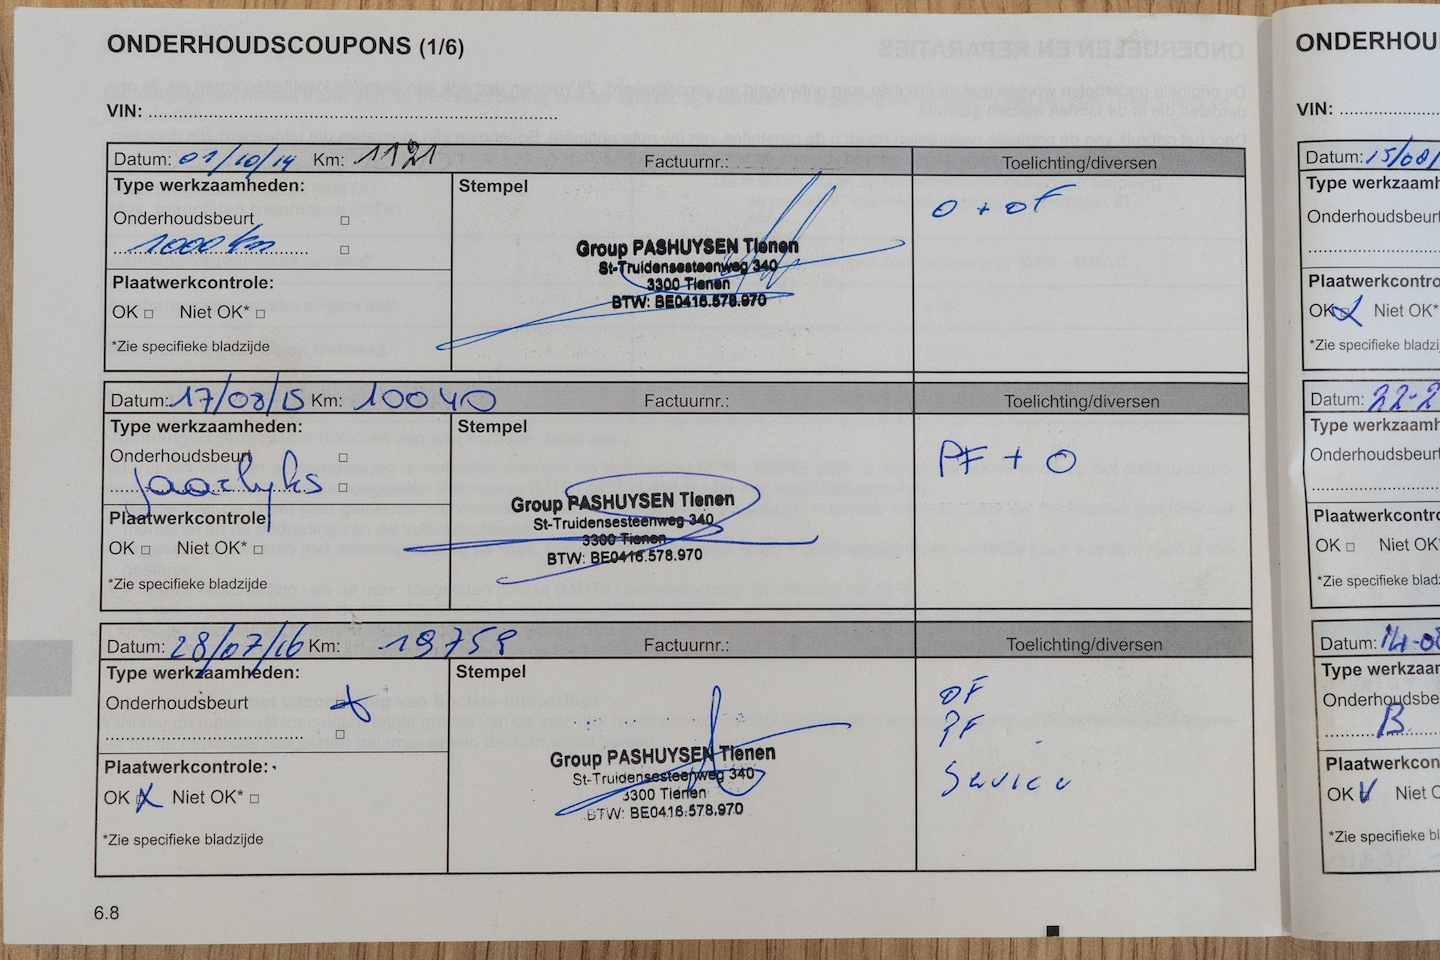 ONDERHOUDSCOUPONS (1/6)
VIN:
Datum: 01/10/14 Km: 1121 Factuurnr.: Toelichting/diversen
Type werkzaamheden: Stempel
Onderhoudsbeurt □
1000 km □
O + OF
Group PASHUYSEN Tienen
St-Truidensesteenweg 340
3300 Tienen
BTW: BE0416.578.970
Plaatwerkcontrole:
OK □ Niet OK* □
*Zie specifieke bladzijde
Datum: 17/08/15 Km: 10040 Factuurnr.: Toelichting/diversen
Type werkzaamheden: Stempel
Onderhoudsbeurt □
Jaarlyks □
PF + O
Group PASHUYSEN Tienen
St-Truidensesteenweg 340
3300 Tienen
BTW: BE0416.578.970
Plaatwerkcontrole:
OK □ Niet OK* □
*Zie specifieke bladzijde
Datum: 28/07/16 Km: 19759 Factuurnr.: Toelichting/diversen
Type werkzaamheden: Stempel
Onderhoudsbeurt X
□
OF
PF
Service
Group PASHUYSEN Tienen
St-Truidensesteenweg 340
3300 Tienen
BTW: BE0416.578.970
Plaatwerkcontrole:
OK X Niet OK* □
*Zie specifieke bladzijde
6.8
ONDERHOU
VIN:
Datum: 15/08/
Type werkzaamh
Onderhoudsbeurt
Plaatwerkcontro
OK Niet OK*
*Zie specifieke bladzij
Datum: 22-2
Type werkzaamh
Onderhoudsbeurt
Plaatwerkcontro
OK □ Niet OK*
*Zie specifieke bladz
Datum: 14-08
Type werkzaar
Onderhoudsbe
B
Plaatwerkcon
OK V Niet O
*Zie specifieke bl